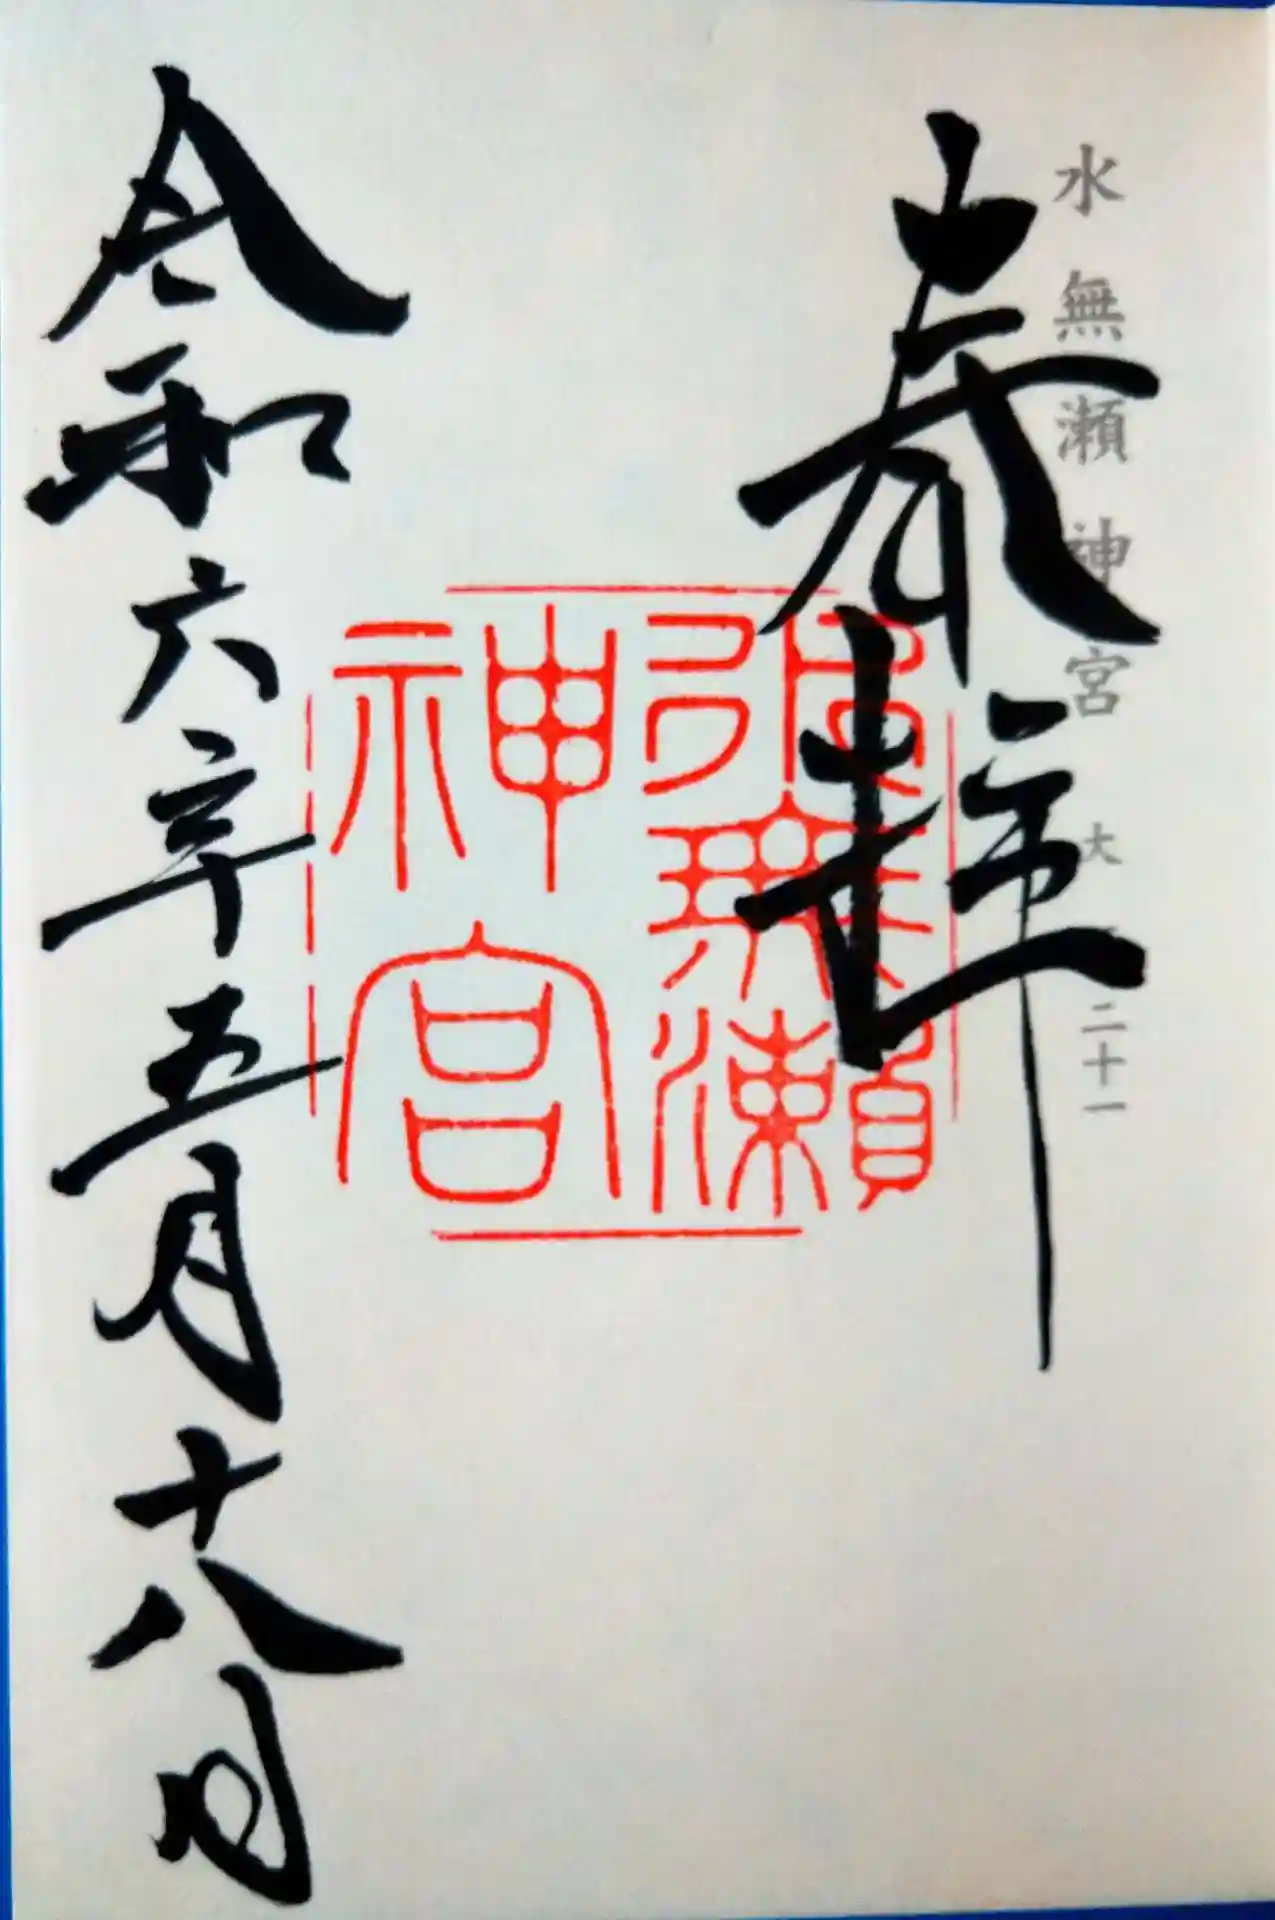 水無瀬神宮 大 二十一
奉拝
無瀬
神宮
令和六年五月十八日